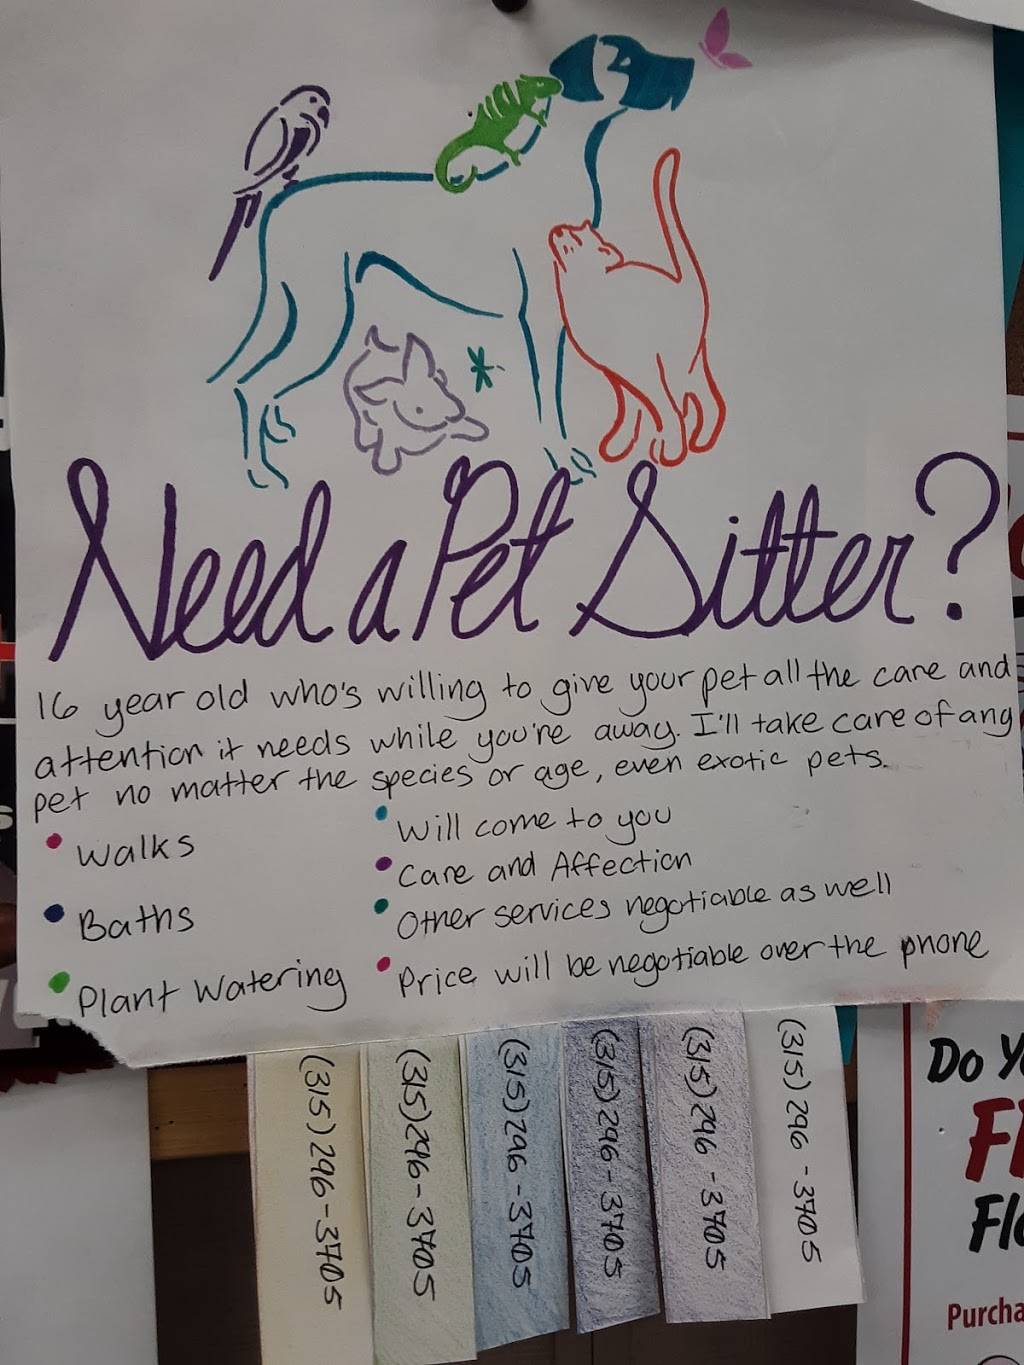 Need a Pet Sitter?
16 year old who's willing to give your pet all the care and
attention it needs while you're away. I'll take care of any
pet no matter the species or age, even exotic pets.
• Walks
• Baths
• Plant Watering
• Will come to you
• Care and Affection
• Other services negotiable as well
• Price will be negotiable over the phone
(315) 296-3705
(315) 296-3705
(315) 296-3705
(315) 296-3705
(315) 296-3705
(315) 296-3705
Do